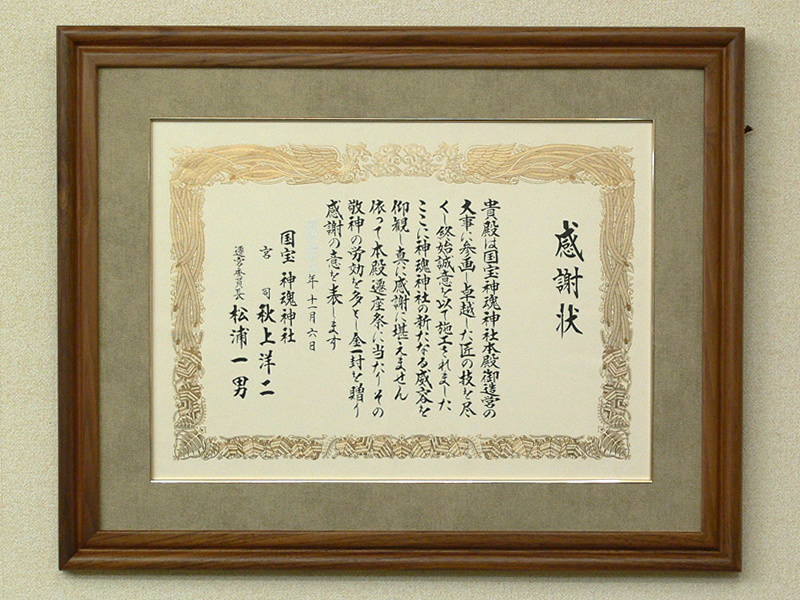 感謝状
貴殿は国宝神魂神社本殿御造営の
大事に参画し卓越した匠の技を尽
くし終始誠意を以て施工されました
ここに神魂神社の新たなる威容を
仰観し真に感謝に堪えません
依って本殿遷座祭に当たりその
敬神の労効を多とし金一封を贈り
感謝の意を表します
年 十一月 六日
国宝 神魂神社
宮司 秋上洋二
造営委員長 松浦一男